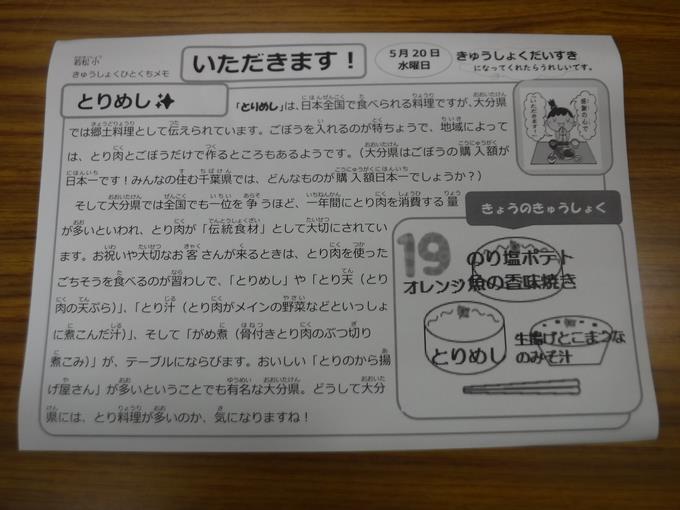 若松小
きゅうしょくひとくちメモ
いただきます！
5月20日
水曜日
きゅうしょくだいすき
になってくれたらうれしいです。
とりめし
「とりめし」は、日本全国で食べられる料理ですが、大分県
では郷土料理として伝えられています。ごぼうを入れるのが特ちょうで、地域によって
は、とり肉とごぼうだけで作るところもあるようです。（大分県はごぼうの購入額が
日本一です！みんなの住む千葉県では、どんなものが購入額日本一でしょうか？）
そして大分県では全国でも一位を争うほど、一年間にとり肉を消費する量
が多いといわれ、とり肉が「伝統食材」として大切にされてい
ます。お祝いや大切なお客さんが来るときは、とり肉を使った
ごちそうを食べるのが習わしで、「とりめし」や「とり天（とり
肉の天ぷら）」、「とり汁（とり肉がメインの野菜などといっしょ
に煮こんだ汁）」、そして「がめ煮（骨付きとり肉のぶつ切り
煮こみ）」が、テーブルにならびます。おいしい「とりのから揚
げ屋さん」が多いということでも有名な大分県。どうして大分
県には、とり料理が多いのか、気になりますね！
感謝の心で
いただきます！
きょうのきゅうしょく
19
のり塩ポテト
オレンジ
魚の香味焼き
とりめし
生揚げとこまつな
のみそ汁